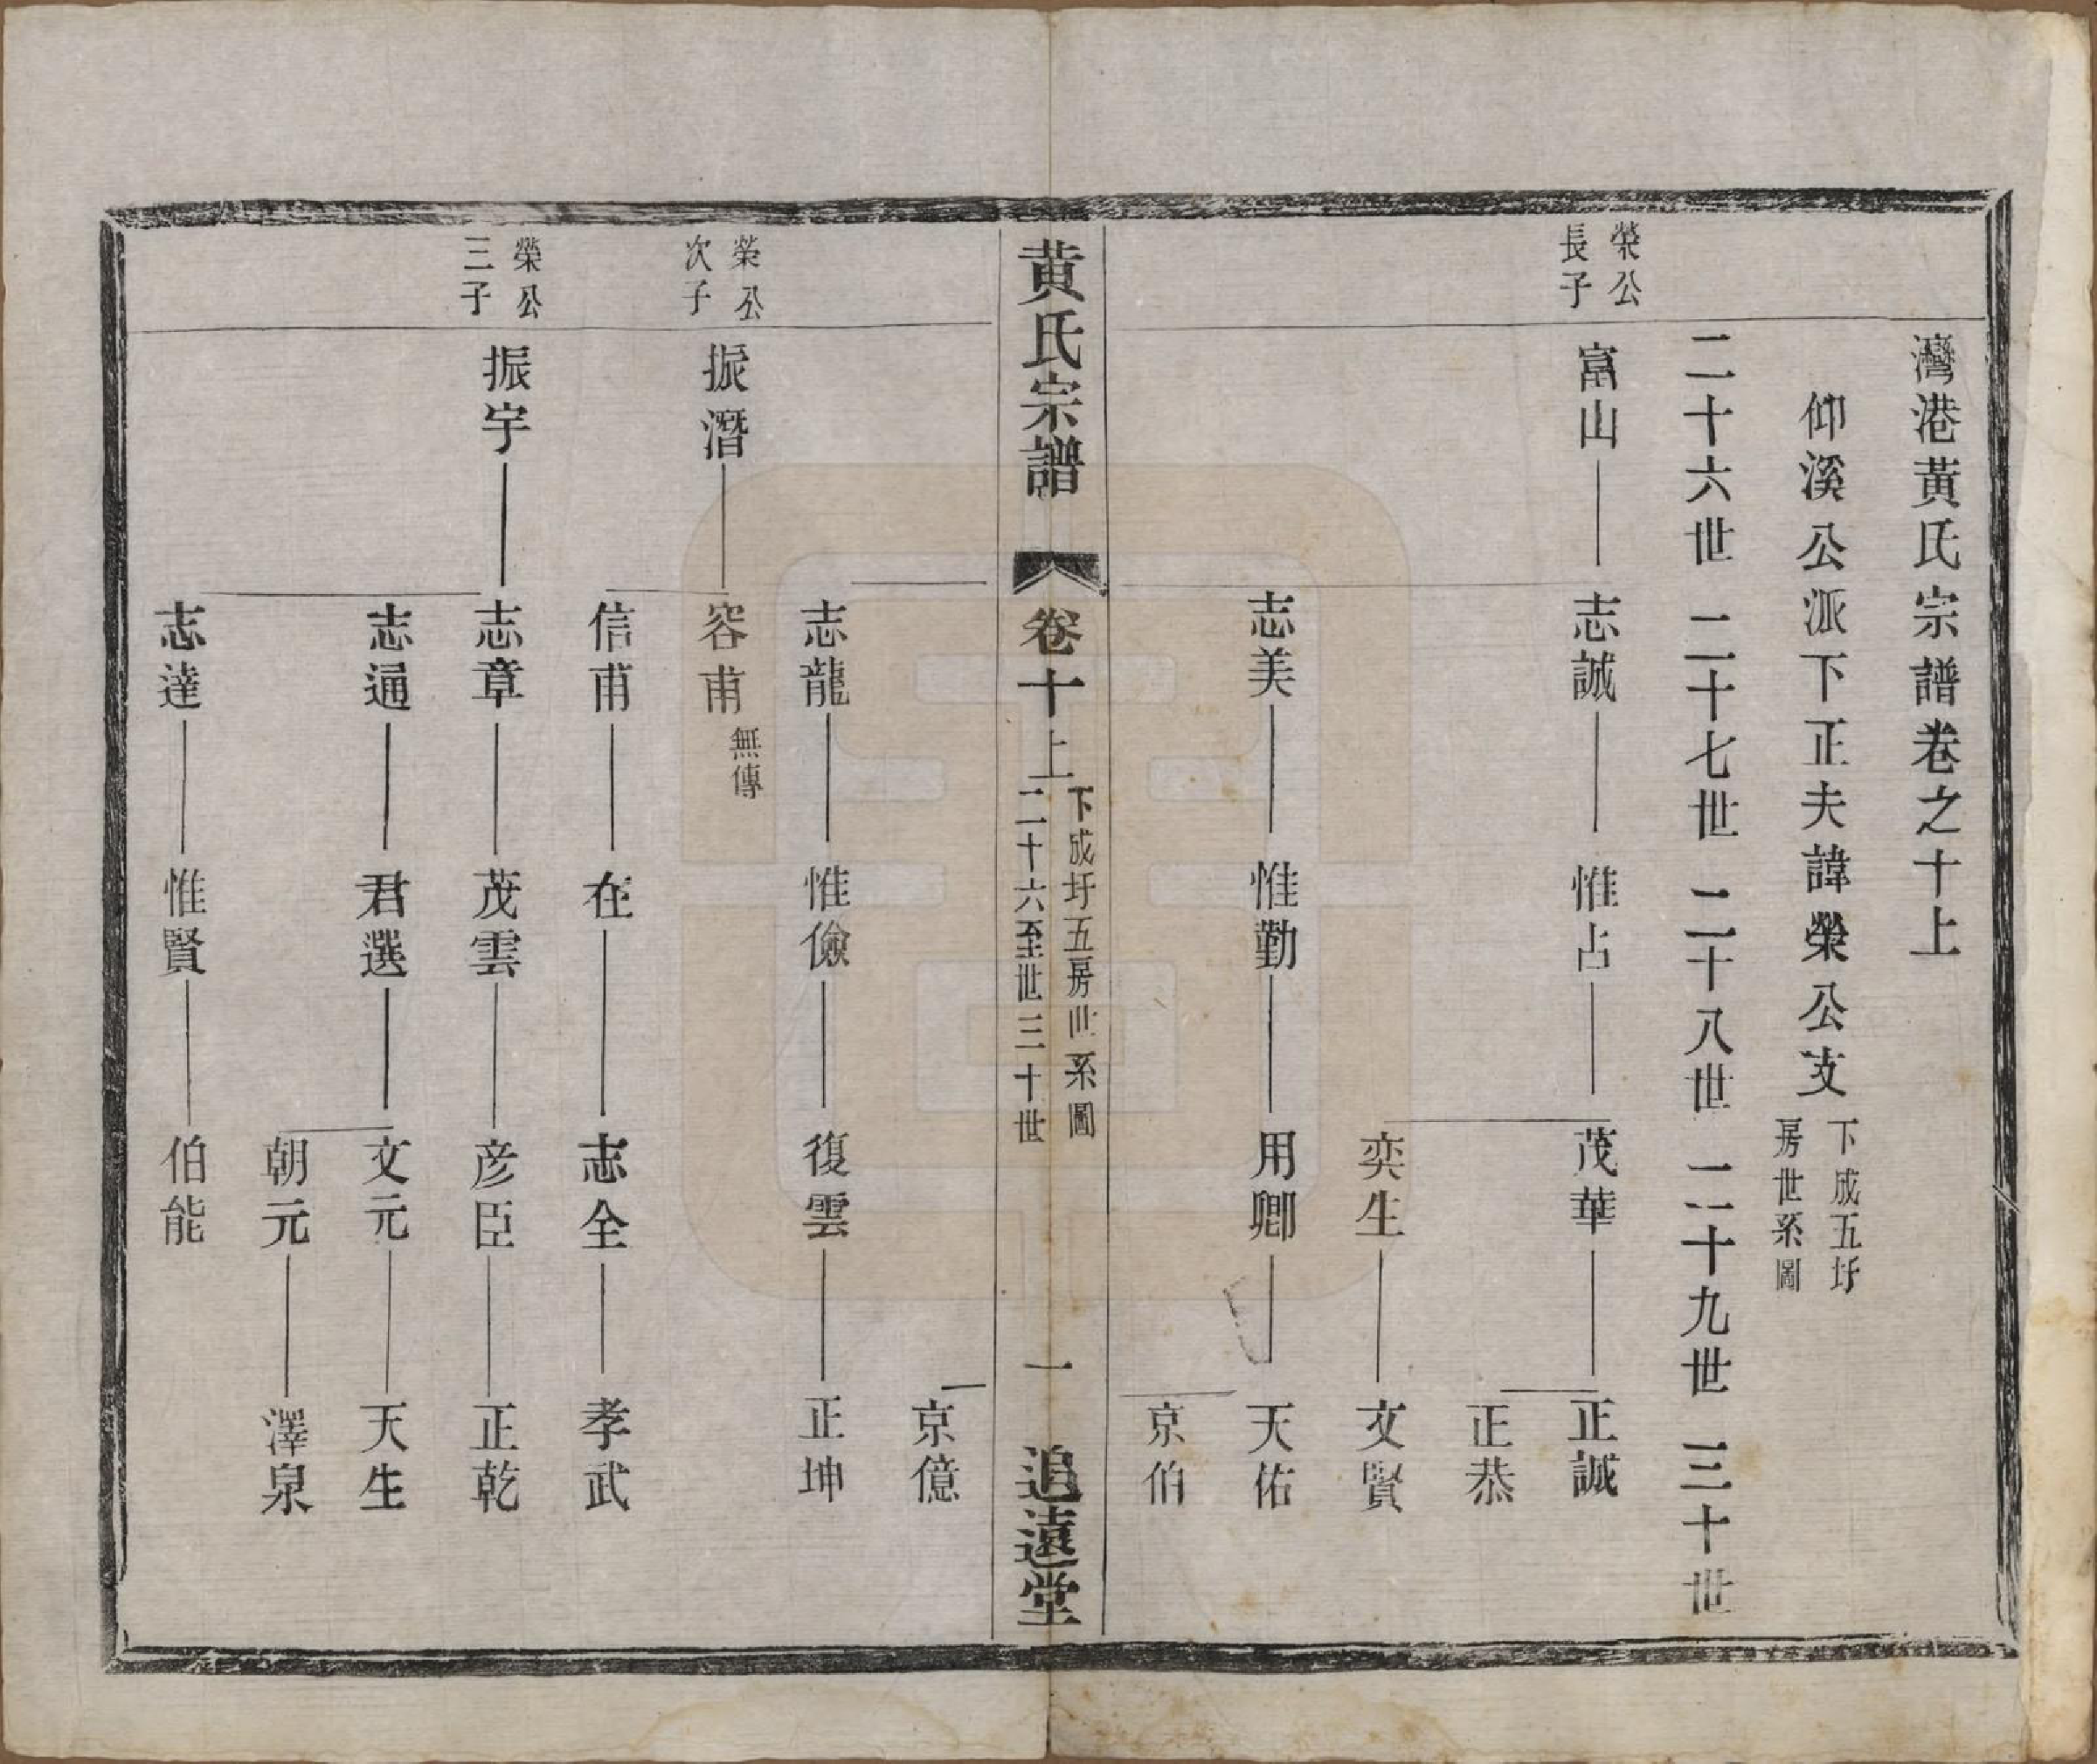 灣港黃氏宗譜卷之十上
仰溪公派下正夫諱榮公支
下成五圩
房世系圖
二十六世 二十七世 二十八世 二十九世 三十世
榮公
長子
富山 志誠 惟占 茂華 正誠
正恭
奕生 文賢
志美 惟勤 用卿 天佑
京伯
黃氏宗譜 卷十上
下成圩五房世系圖
二十六至世三十世
一 追遠堂
京億
志龍 惟儉 復雲 正坤
榮公
次子
振潛 容甫 無傳
信甫 在 志全 孝武
榮公
三子
振宇 志章 茂雲 彦臣 正乾
志通 君選 文元 天生
朝元 澤泉
志達 惟賢 伯能